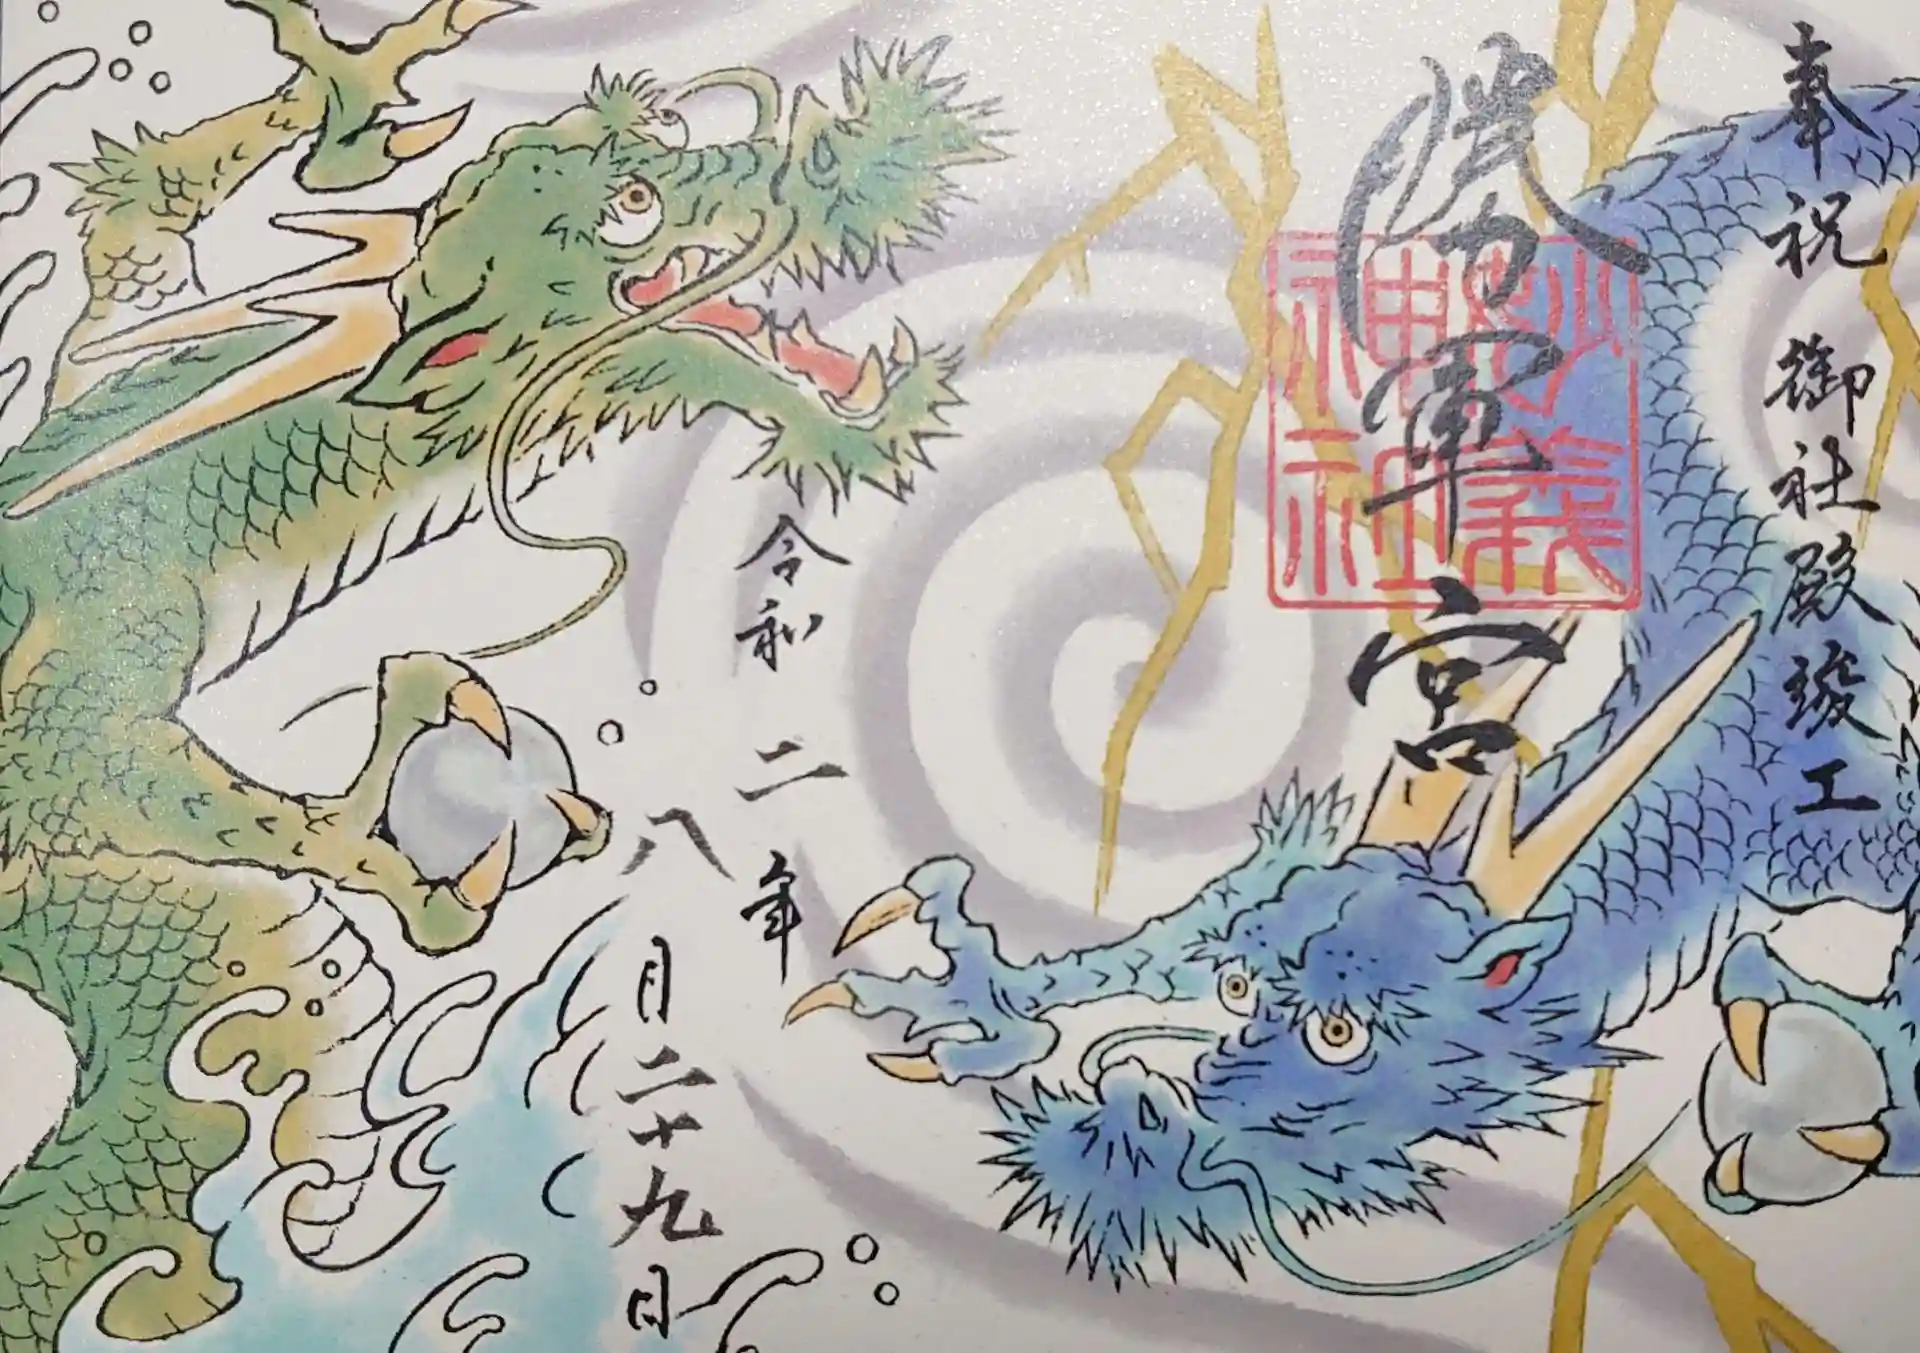 奉祝 御社殿竣工
勝軍宮
妙義
神社
令和二年
八月二十九日